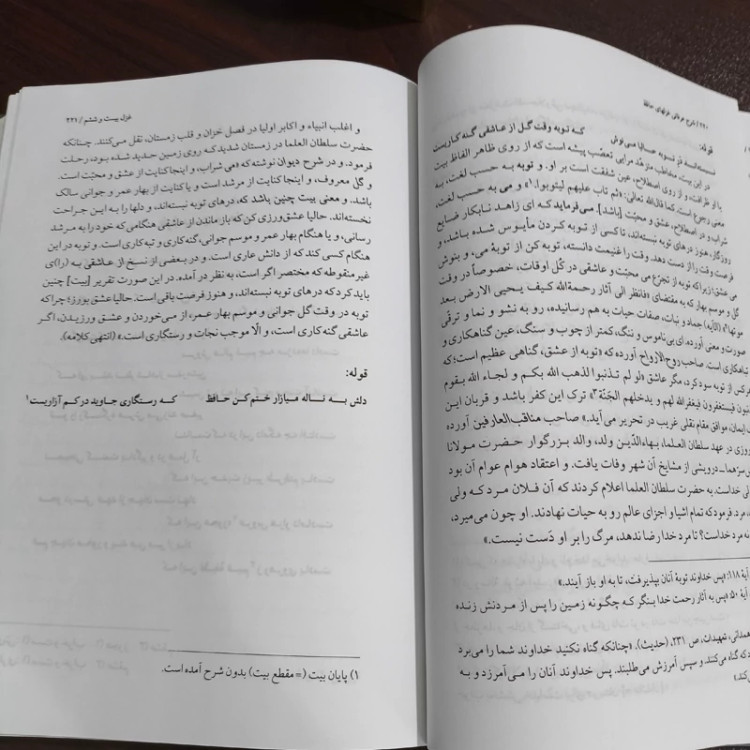 ۲۲۰ / شرح عرفانی غزلهای حافظ
قوله:
که توبه وقت گل از عاشقی گنه کاریست
در این بیت، مخاطب مزهّد مرایی تعصّب پیشه است که از روی ظاهر الفاظ بیت
با او ظرافت، و از روی اصطلاح، عین شفقت است بر او. و توبه به حسب لغت، به
معنی رجوع است، کما قال الله تعالی: «ثم تاب علیهم لیتوبوا.» و می به حسب لغت،
شراب و در اصطلاح، عشق و محبّت [باشد]. می‌فرماید که ای زاهد نابکار ضایع
روزگار، هنوز درهای توبه نبسته‌اند، تا کسی از توبه کردن مأیوس شده باشد، و
فرصت وقت را از دست دهد. وقت را غنیمت دانسته، توبه کن از توبهٔ می، و بنوش
می عشق؛ زیرا که توبه از تجرّع می محبّت و عاشقی در کُل اوقات، خصوصاً در وقت
گل و موسم بهار که به مقتضای «فانظر الی آثار رحمة الله کیف یحیی الارض بعد
موتها» (الآیه)، جماد و نبات، صفات حیات به هم رسانیده، رو به نشو و نما و ترقی
صورت و معنی آورده، ای بی‌ناموس و ننگ، کمتر از چوب و سنگ، عین گناهکاری و
تباهکاری است. صاحب روح‌الأرواح آورده که «توبه از عشق، گناهی عظیم است؛ که
هر کس از توبه سود کرد، مگر عاشق «لو لم تذنبوا لذهب الله بکم و لجاء الله بقوم
یذنبون فیستغفرون فیغفر الله لهم و یدخلهم الجنّة» ترک این کفر باشد و قربان این
ایمان. موافق مقام نقلی غریب در تحریر می آید.» صاحب مناقب‌العارفین آورده
روزی در عهد سلطان العلماء، بهاءالدّین ولد، والد بزرگوار حضرت مولانا
درویشی از مشایخ آن شهر وفات یافت، و اعتقاد هوام عوام آن بود
خداست. به حضرت سلطان العلما اعلام کردند که آن فلان مرد که ولی
مرد. فرمود که تمام اشیا و اجزای عالم رو به حیات نهادند. او چون می‌میرد،
نه مرد خداست؟ تا مرد خدا رضا ندهد، مرگ را بر او دَست نیست.»
آیهٔ ۱۱۸: «پس خداوند توبهٔ آنان بپذیرفت، تا به او باز آیند.»
آیهٔ ۵۰: «پس به آثار رحمت خدا بنگر که چگونه زمین را پس از مردنش زنده
همدانی، تمهیدات، ص ۲۳۱، (حدیث)، «چنانکه گناه نکنید خداوند شما را می‌برد
که گناه می‌کنند و سپس آمرزش می‌طلبند. پس خداوند آنان را می‌آمرزد و به
غزل بیست و ششم / ۲۲۱
و اغلب انبیاء و اکابر اولیا در فصل خزان و قلب زمستان، نقل می‌کنند. چنانکه
حضرت سلطان العلما در زمستان شدید که روی زمین حدید شده بود، رحلت
فرمود. و در شرح دیوان نوشته که «می شراب، و اینجا کنایت از عشق و محبّت است.
و گل معروف، و اینجا کنایت از مرشد است و یا کنایت از بهار عمر و جوانی سالک
باشد. و معنی بیت چنین باشد که، درهای توبه نبسته‌اند، و دلها را به این جراحت
نخسته‌اند. حالیا عشق‌ورزی کن که باز ماندن از عاشقی هنگامی که خود را به مرشد
رسانی، و یا هنگام بهار عمر و موسم جوانی، گنه کاری و تبه کاری است. و توبه در این
هنگام کسی کند که از دانش عاری است. و در بعضی از نسخ از عاشقی به (را)ی
غیرمنقوطه که مختصر اگر است، به نظر در آمده. در این صورت تقریر [بیت] چنین
باید کرد که درهای توبه نبسته‌اند، و هنوز فرصت باقی است. حالیا عشق بورز؛ چرا که
توبه در وقت گل جوانی و موسم بهار عمر، از می‌خوردن و عشق ورزیدن، اگر
عاشقی گنه‌کاری است، و الّا موجب نجات و رستگاری است.» (انتهی کلامه).
قوله:
دلش به ناله میازار ختم کن حافظ که رستگاری جاوید در کم آزاریست۱
۱) پایان بیت (= مقطع بیت) بدون شرح آمده است.